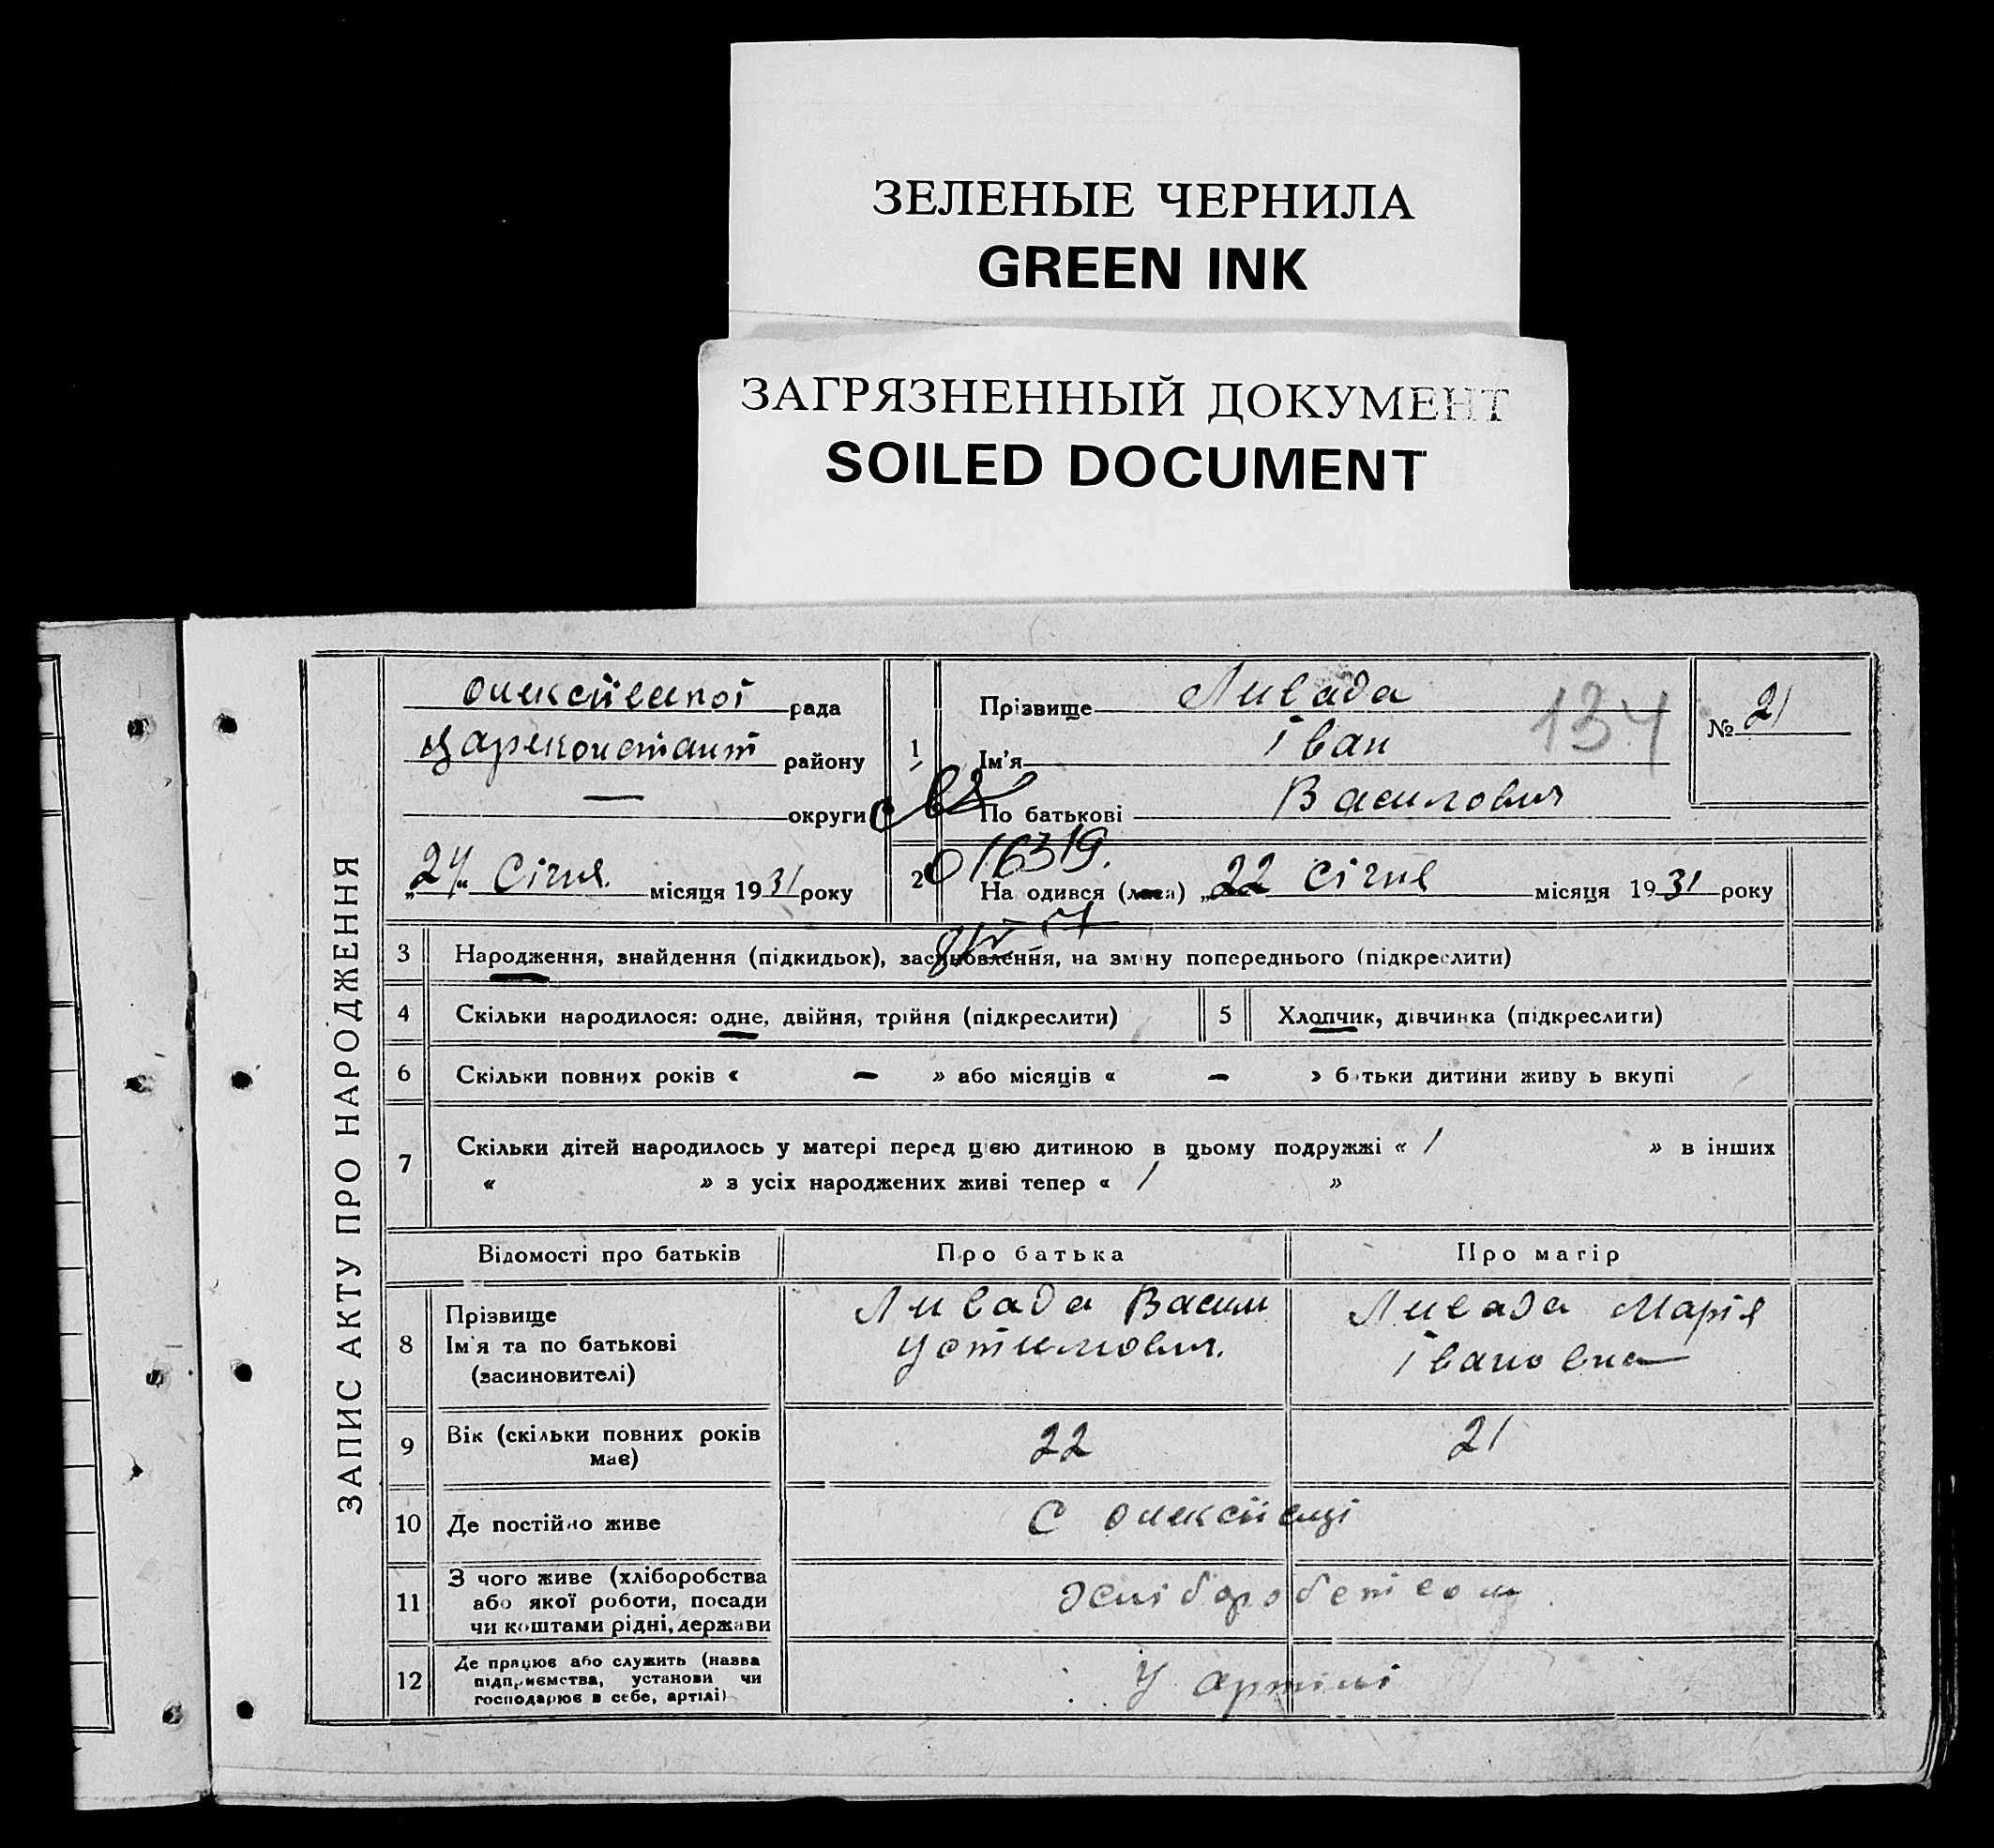 ЗЕЛЕНЫЕ ЧЕРНИЛА
GREEN INK
ЗАГРЯЗНЕННЫЙ ДОКУМЕНТ
SOILED DOCUMENT
ЗАПИС АКТУ ПРО НАРОДЖЕННЯ
рада
Цареконстант району
— округи
"24" Січня місяця 1931 року
1
Прізвище Ливада
Ім'я Іван
По батькові Василович
134
№ 21
016319.
2 На одився (лася) "22 Січня місяця 1931 року
3 Народження, знайдення (підкидьок), засиновлення, на зміну попереднього (підкреслити)
4 Скільки народилося: одне, двійня, трійня (підкреслити)
5 Хлопчик, дівчинка (підкреслити)
6 Скільки повних років « — » або місяців « — » батьки дитини живуть вкупі
7 Скільки дітей народилось у матері перед цією дитиною в цьому подружжі « 1 » в інших
« » з усіх народжених живі тепер « 1 »
Відомості про батьків Про батька Про матір
8 Прізвище
Ім'я та по батькові
(засиновителі)
Ливада Васил
Устимович.
Ливада Марія
Івановна
9 Вік (скільки повних років
має)
22 21
10 Де постійно живе С Олексіївці
11 З чого живе (хліборобства
або якої роботи, посади
чи коштами рідні, держави
Хліборобством
12 Де працює або служить (назва
підприємства, установи чи
господарює в себе, артілі)
У артілі